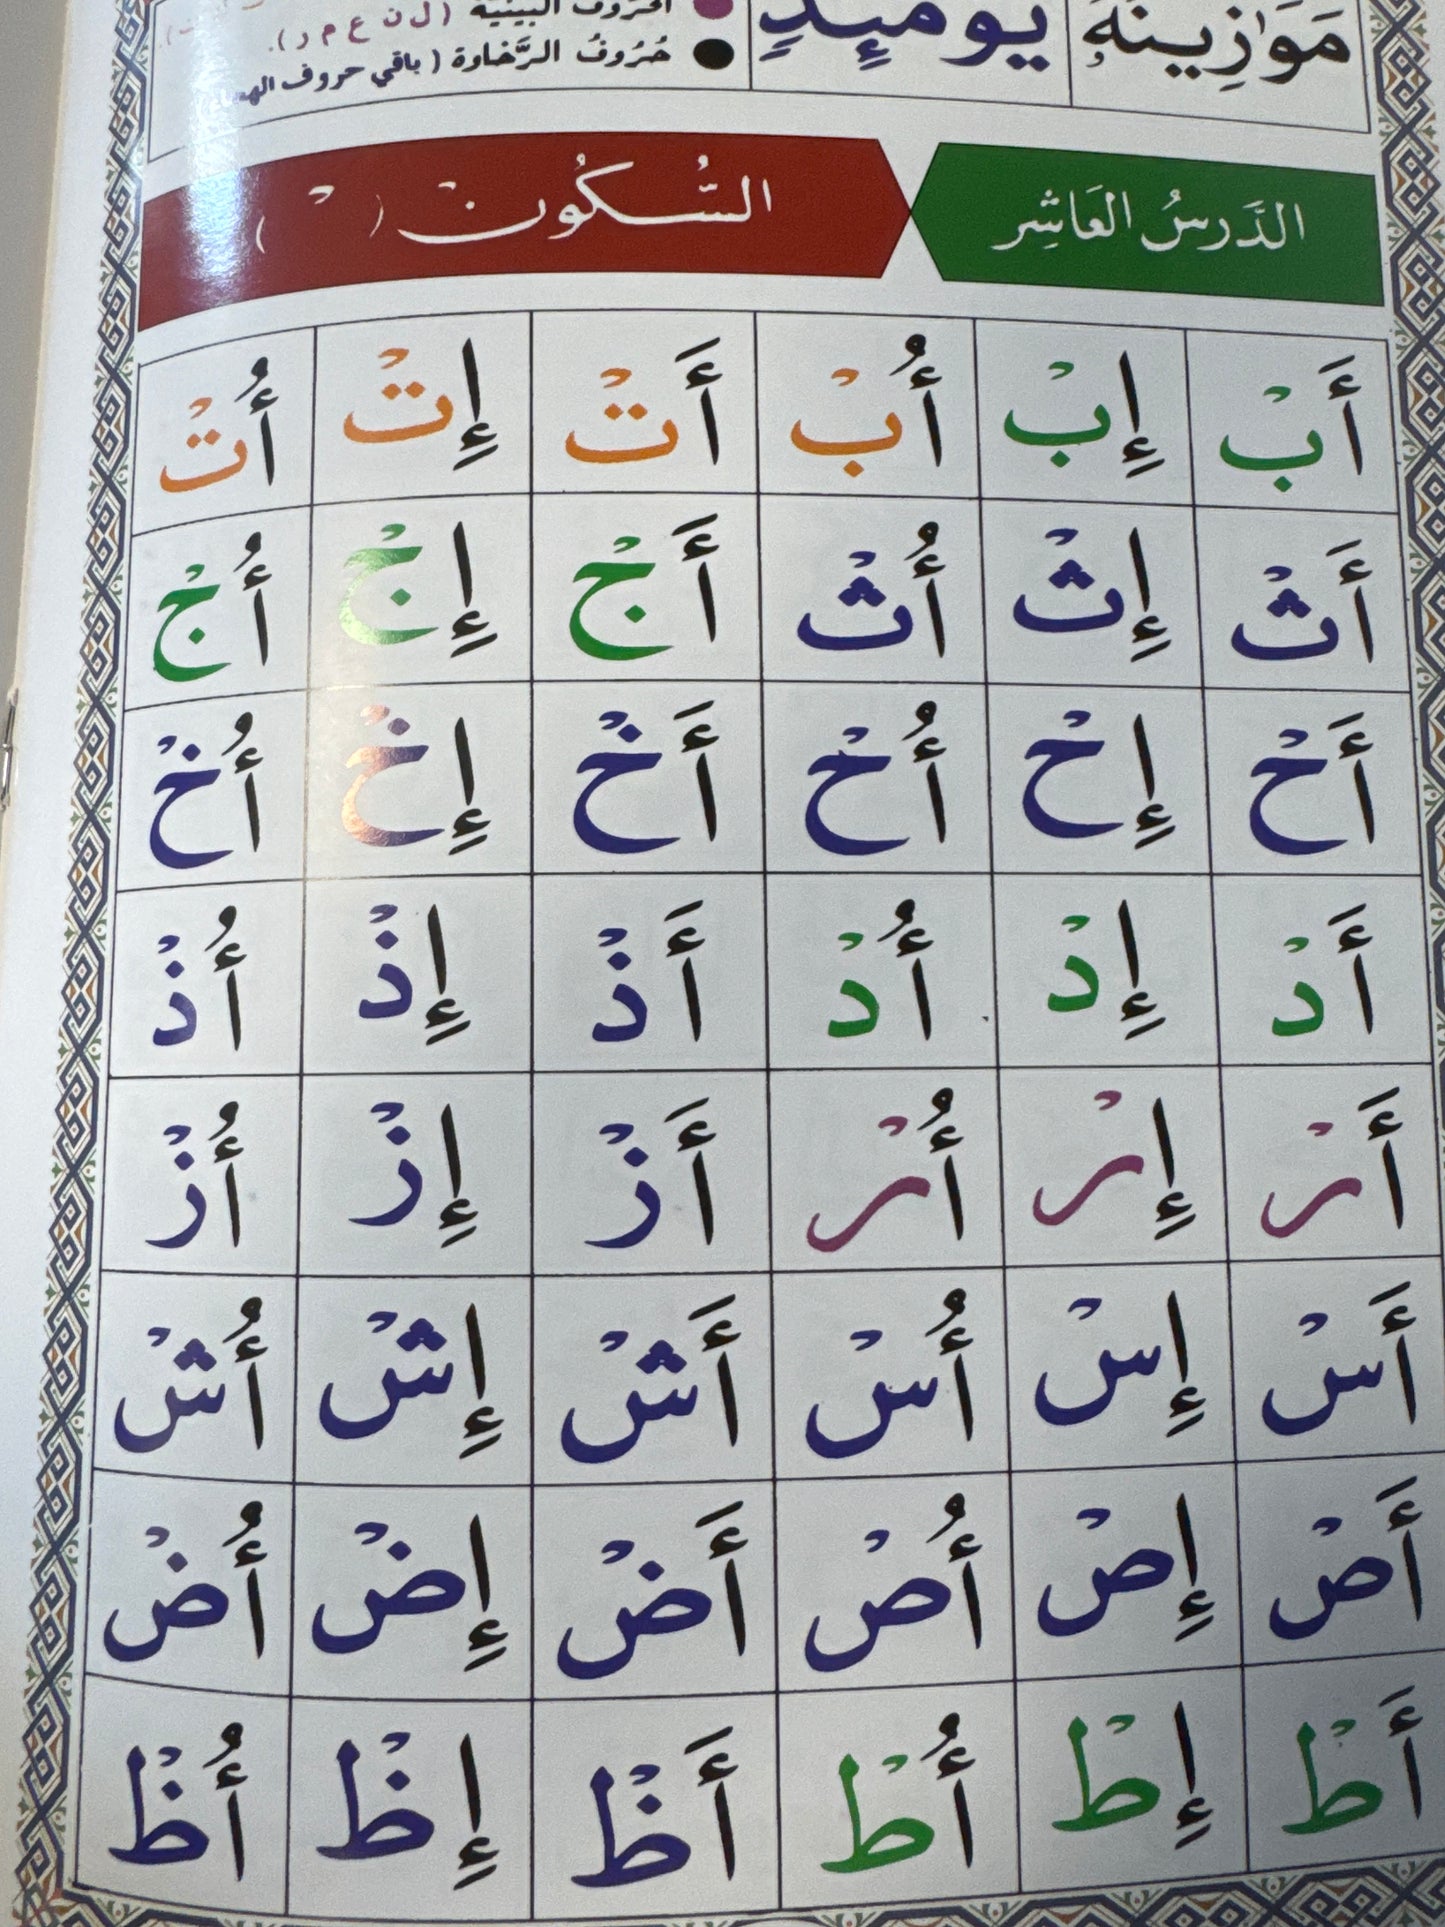 مَوَازِينُهُ يَوْمَئِذٍ
الحروف البينية ( ل ن ع م ر ).
حُرُوفُ الرَّخَاوة ( باقي حروف الهجاء
الدَّرسُ العَاشِر
السُّكُون ( ْ )
أَبْ إِبْ أُبْ أَتْ إِتْ أُتْ
أَثْ إِثْ أُثْ أَجْ إِجْ أُجْ
أَحْ إِحْ أُحْ أَخْ إِخْ أُخْ
أَدْ إِدْ أُدْ أَذْ إِذْ أُذْ
أَرْ إِرْ أُرْ أَزْ إِزْ أُزْ
أَسْ إِسْ أُسْ أَشْ إِشْ أُشْ
أَصْ إِصْ أُصْ أَضْ إِضْ أُضْ
أَطْ إِطْ أُطْ أَظْ إِظْ أُظْ